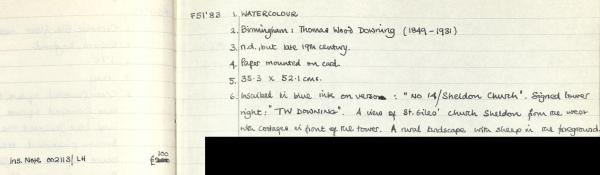 F51'83 1. WATERCOLOUR
2. Birmingham : Thomas Wood Downing (1849-1931)
3. n.d., but late 19th century.
4. Paper mounted on card.
5. 35.3 x 52.1 cms.
6. Inscribed in blue ink on verso : "No 14/Sheldon Church". Signed lower
right : "TW DOWNING". A view of St. Giles' church Sheldon from the west
with cottages in front of the tower. A rural landscape with sheep in the foreground.
Ins. Note 002113/LH £200